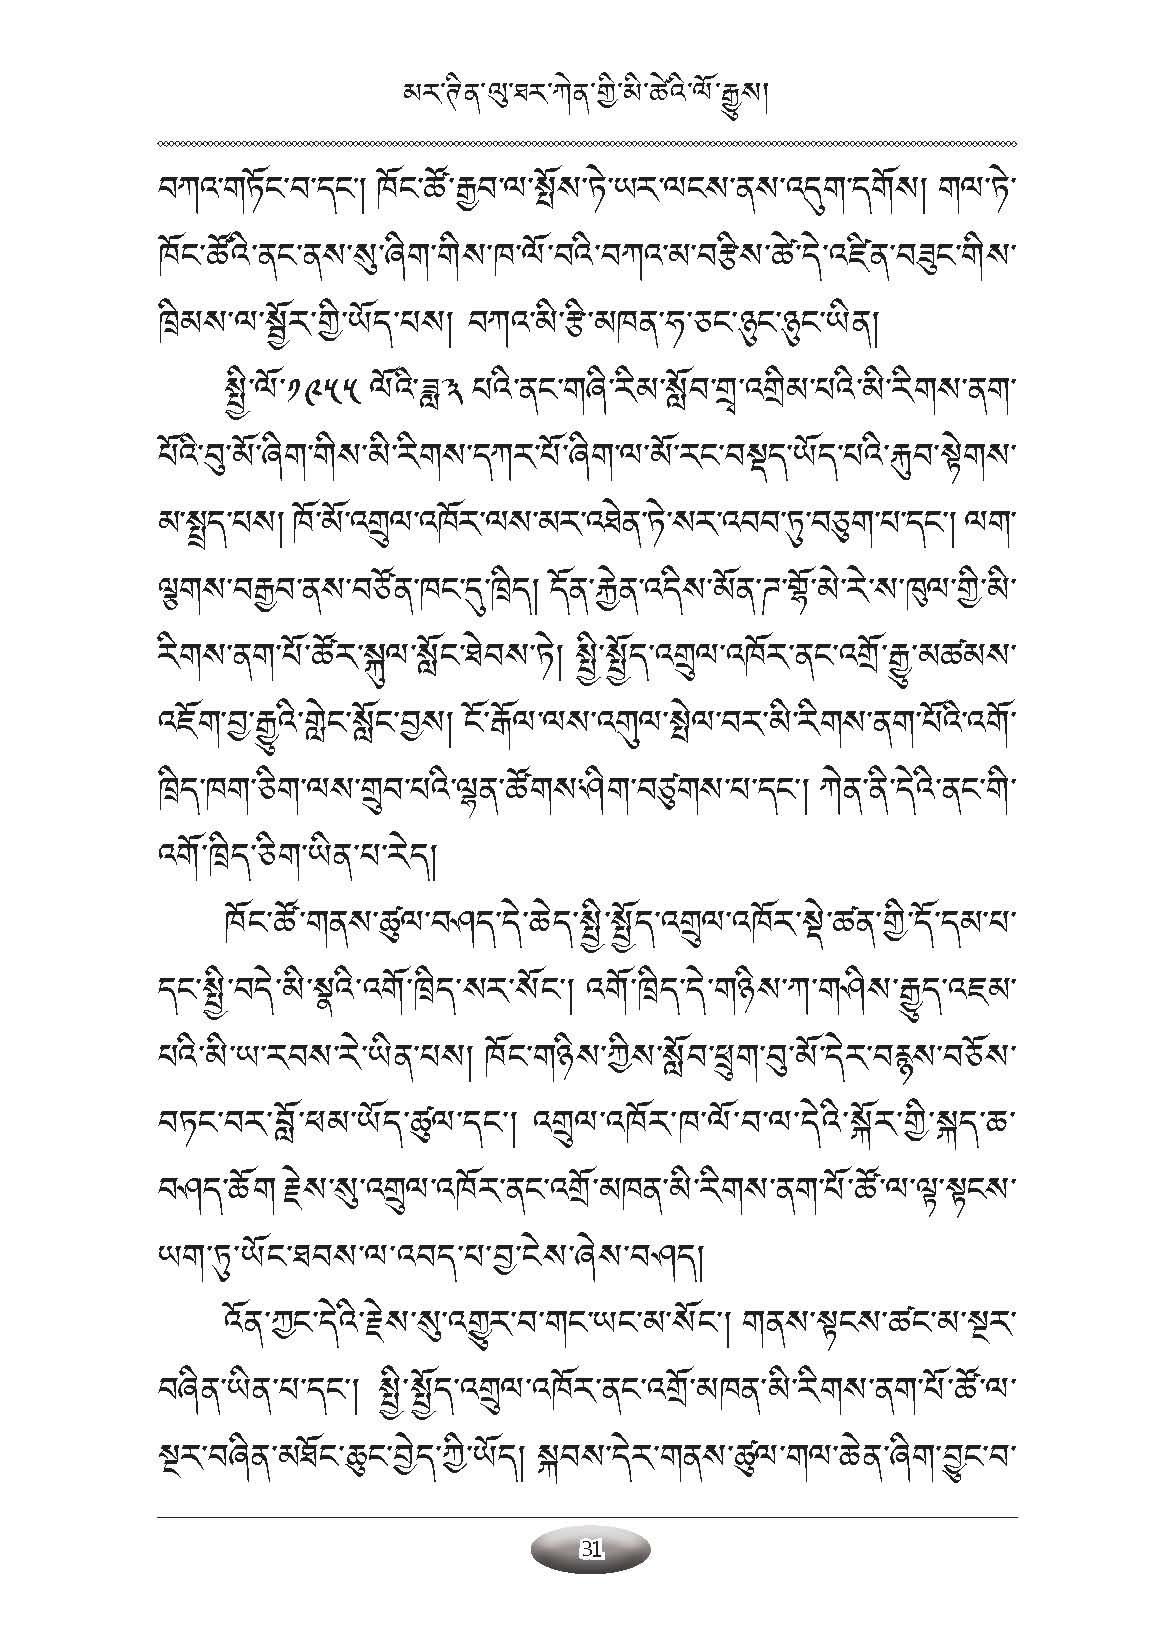 མར་ཊིན་ལུ་ཐར་ཀེན་གྱི་མི་ཚེའི་ལོ་རྒྱུས།
བཀའ་གཏོང་བ་དང་། ཁོང་ཚོ་རྒྱབ་ལ་སྤོས་ཏེ་ཡར་ལངས་ནས་འདུག་དགོས། གལ་ཏེ་
ཁོང་ཚོའི་ནང་ནས་སུ་ཞིག་གིས་ཁ་ལོ་བའི་བཀའ་མ་བརྩིས་ཚེ་དེ་འཛིན་བཟུང་གིས་
ཁྲིམས་ལ་སྦྱོར་གྱི་ཡོད་པས། བཀའ་མི་རྩི་མཁན་ཧ་ཅང་ཉུང་ཉུང་ཡིན།
སྤྱི་ལོ་༡༩༥༥ ལོའི་ཟླ་༣ པའི་ནང་གཞི་རིམ་སློབ་གྲྭ་འགྲིམ་པའི་མི་རིགས་ནག་
པོའི་བུ་མོ་ཞིག་གིས་མི་རིགས་དཀར་པོ་ཞིག་ལ་མོ་རང་བསྡད་ཡོད་པའི་རྐུབ་སྟེགས་
མ་སྤྲད་པས། ཁོ་མོ་འགྲུལ་འཁོར་ལས་མར་འཐེན་ཏེ་སར་འབབ་ཏུ་བཅུག་པ་དང་། ལག་
ལྕགས་བརྒྱབ་ནས་བཙོན་ཁང་དུ་ཁྲིད། དོན་རྐྱེན་འདིས་མོན་ཊ་གྷོ་མེ་རེ་ས་ཁུལ་གྱི་མི་
རིགས་ནག་པོ་ཚོར་སྐུལ་སློང་ཐེབས་ཏེ། སྤྱི་སྤྱོད་འགྲུལ་འཁོར་ནང་འགྲོ་རྒྱུ་མཚམས་
འཇོག་བྱ་རྒྱུའི་གླེང་སློང་བྱས། ངོ་རྒོལ་ལས་འགུལ་སྤེལ་བར་མི་རིགས་ནག་པོའི་འགོ་
ཁྲིད་ཁག་ཅིག་ལས་གྲུབ་པའི་ལྷན་ཚོགས་ཤིག་བཙུགས་པ་དང་། ཀེན་ནི་དེའི་ནང་གི་
འགོ་ཁྲིད་ཅིག་ཡིན་པ་རེད།
ཁོང་ཚོ་གནས་ཚུལ་བཤད་དེ་ཆེད་སྤྱི་སྤྱོད་འགྲུལ་འཁོར་སྡེ་ཚན་གྱི་དོ་དམ་པ་
དང་སྤྱི་བདེ་མི་སྣའི་འགོ་ཁྲིད་སར་སོང་། འགོ་ཁྲིད་དེ་གཉིས་ཀ་གཤིས་རྒྱུད་འཇམ་
པའི་མི་ཡ་རབས་རེ་ཡིན་པས། ཁོང་གཉིས་ཀྱིས་སློབ་ཕྲུག་བུ་མོ་དེར་བརྙས་བཅོས་
བཏང་བར་བློ་ཕམ་ཡོད་ཚུལ་དང་། འགྲུལ་འཁོར་ཁ་ལོ་བ་ལ་དེའི་སྐོར་གྱི་སྐད་ཆ་
བཤད་ཆོག རྗེས་སུ་འགྲུལ་འཁོར་ནང་འགྲོ་མཁན་མི་རིགས་ནག་པོ་ཚོ་ལ་ལྟ་སྟངས་
ཡག་ཏུ་ཡོང་ཐབས་ལ་འབད་པ་བྱ་ངེས་ཞེས་བཤད།
འོན་ཀྱང་དེའི་རྗེས་སུ་འགྱུར་བ་གང་ཡང་མ་སོང་། གནས་སྟངས་ཚང་མ་སྔར་
བཞིན་ཡིན་པ་དང་། སྤྱི་སྤྱོད་འགྲུལ་འཁོར་ནང་འགྲོ་མཁན་མི་རིགས་ནག་པོ་ཚོ་ལ་
སྔར་བཞིན་མཐོང་ཆུང་བྱེད་ཀྱི་ཡོད། སྐབས་དེར་གནས་ཚུལ་གལ་ཆེན་ཞིག་བྱུང་བ་
31